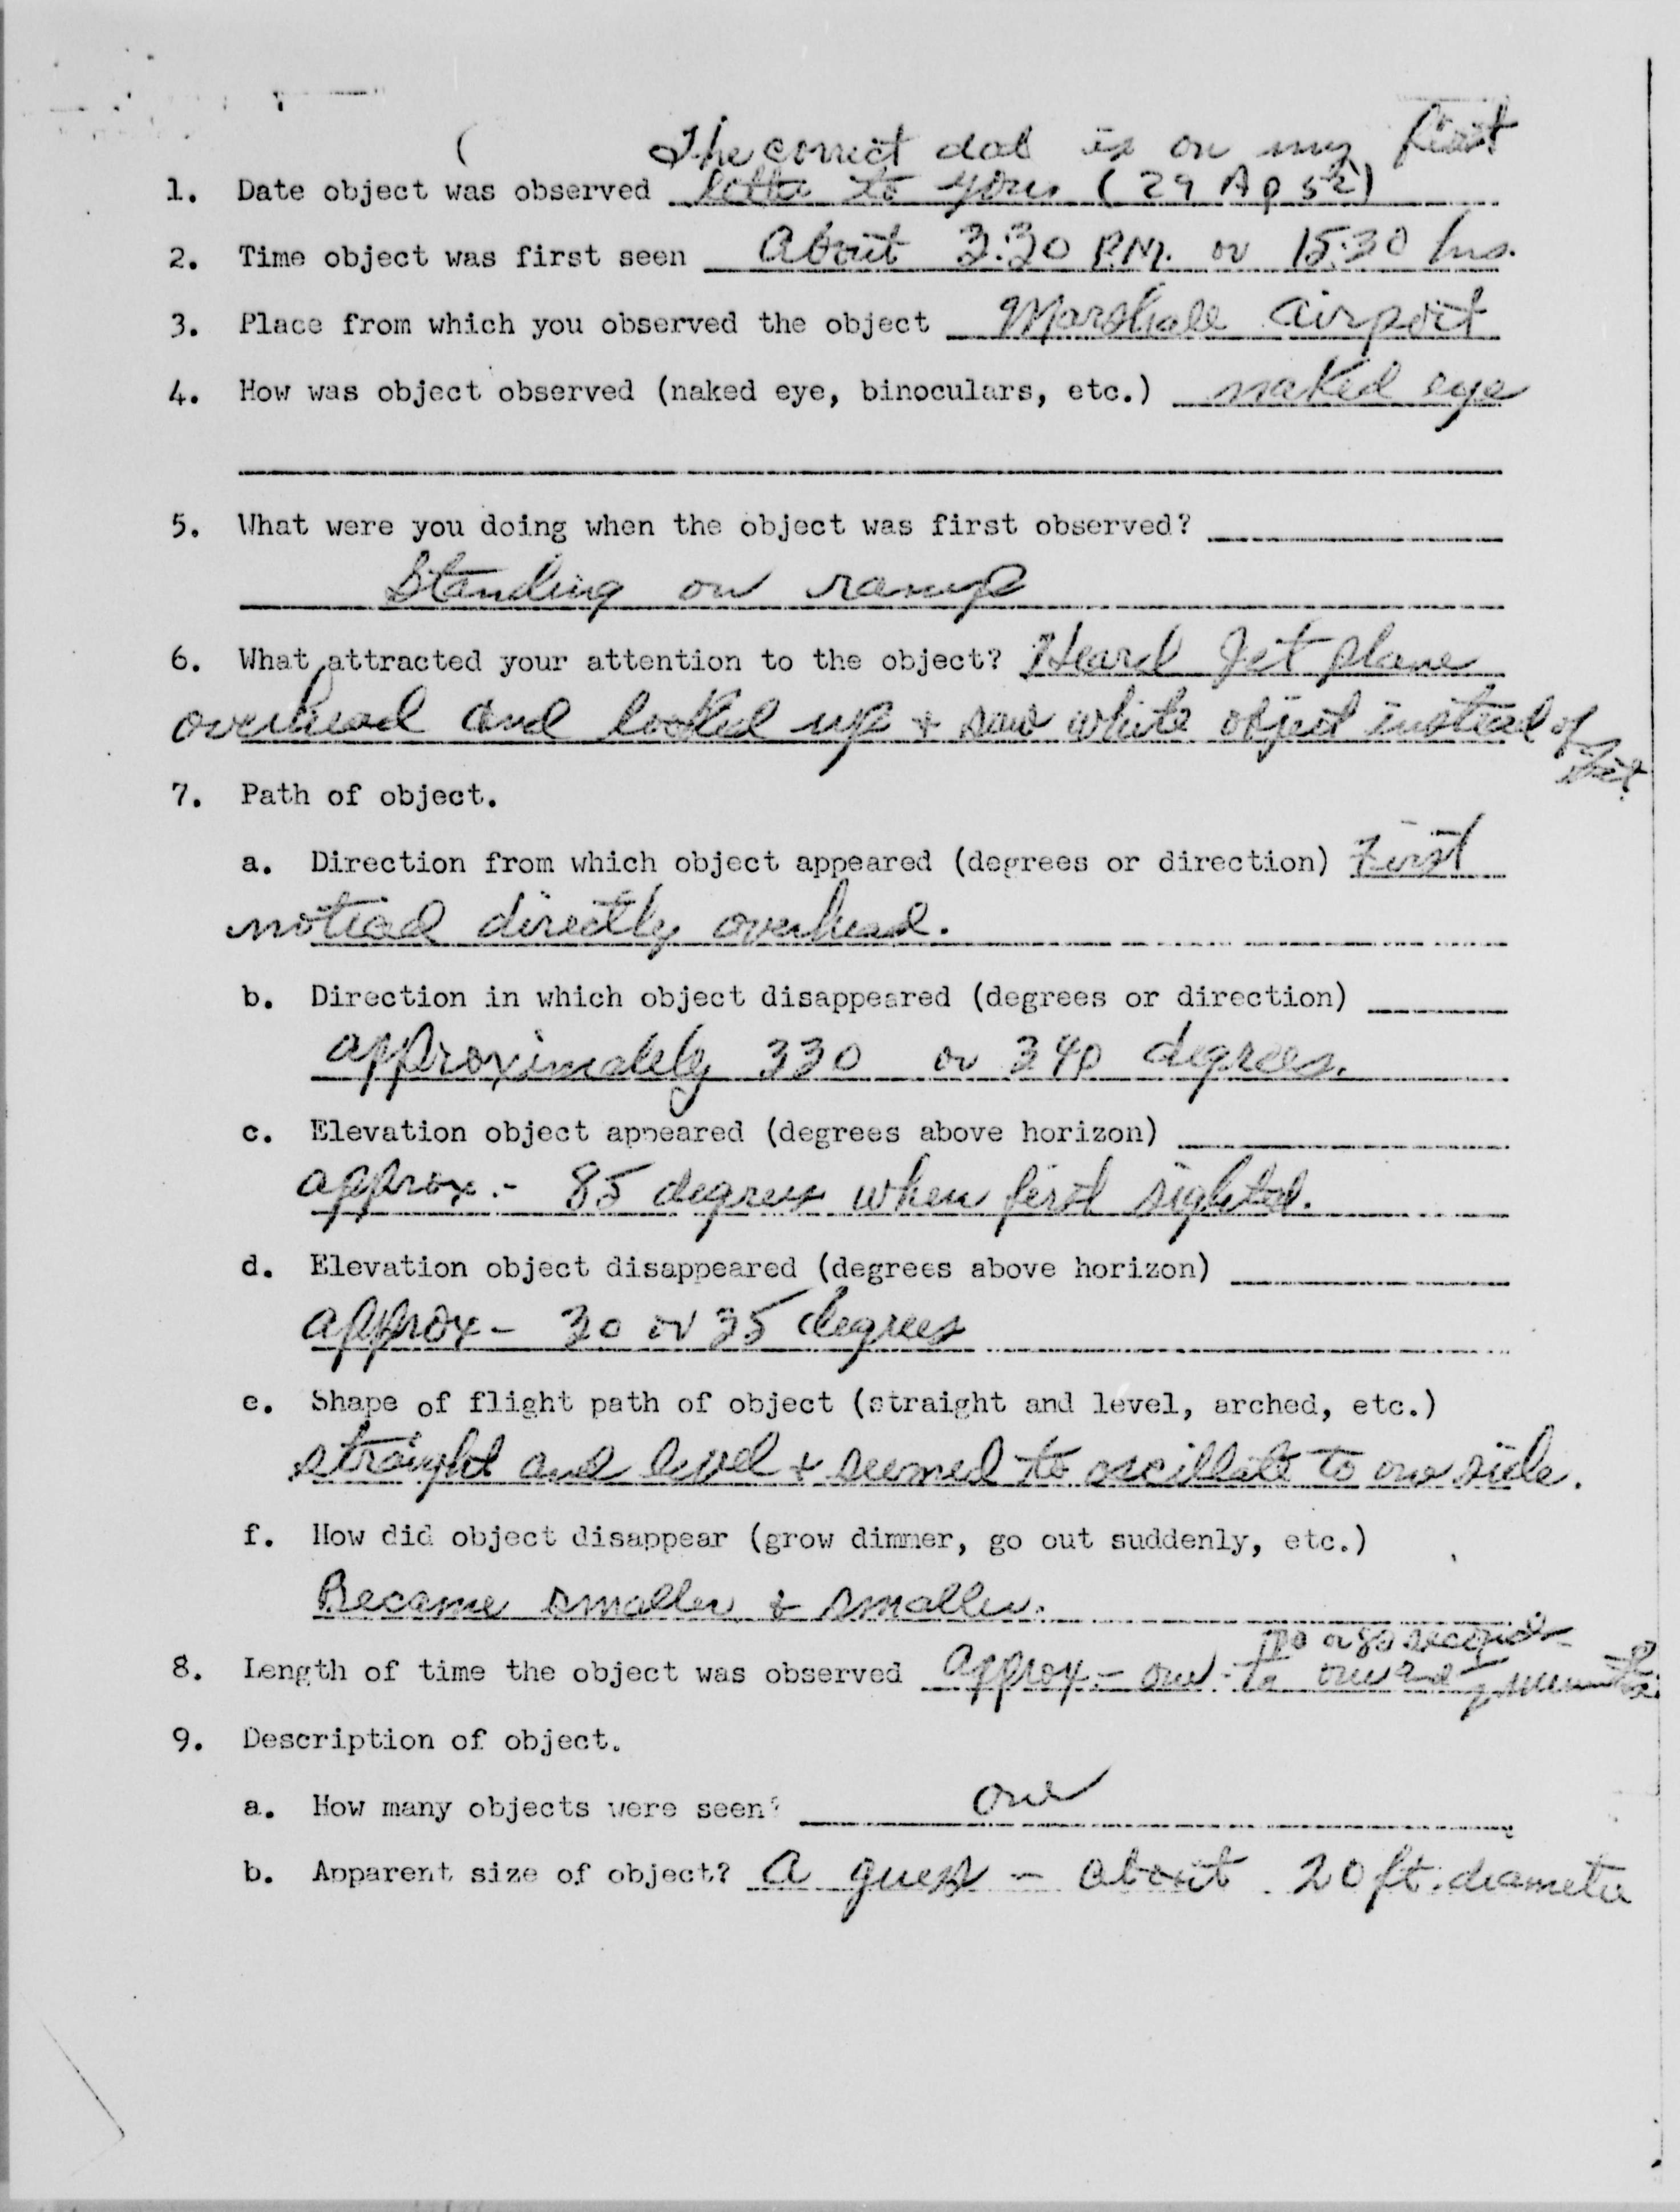 The correct dat is on my first
1. Date object was observed letter to you. (29 Ap 52)
2. Time object was first seen About 3:30 P.M. or 15:30 hrs.
3. Place from which you observed the object Marshall Airport
4. How was object observed (naked eye, binoculars, etc.) naked eye
5. What were you doing when the object was first observed?
Standing on ramp
6. What attracted your attention to the object? Heard Jet plane
overhead and looked up & saw white object instead of
Jet.
7. Path of object.
a. Direction from which object appeared (degrees or direction) First
noticed directly overhead.
b. Direction in which object disappeared (degrees or direction)
approximately 330 or 340 degrees.
c. Elevation object appeared (degrees above horizon)
approx.- 85 degrees when first sighted.
d. Elevation object disappeared (degrees above horizon)
approx- 30 or 35 degrees
e. Shape of flight path of object (straight and level, arched, etc.)
straight and level & seemed to oscillate to one side.
f. How did object disappear (grow dimmer, go out suddenly, etc.)
Became smaller & smaller.
seconds
8. Length of time the object was observed approx.- one to one and ½ minutes
9. Description of object.
a. How many objects were seen? one
b. Apparent size of object? A guess - about 20 ft. diameter